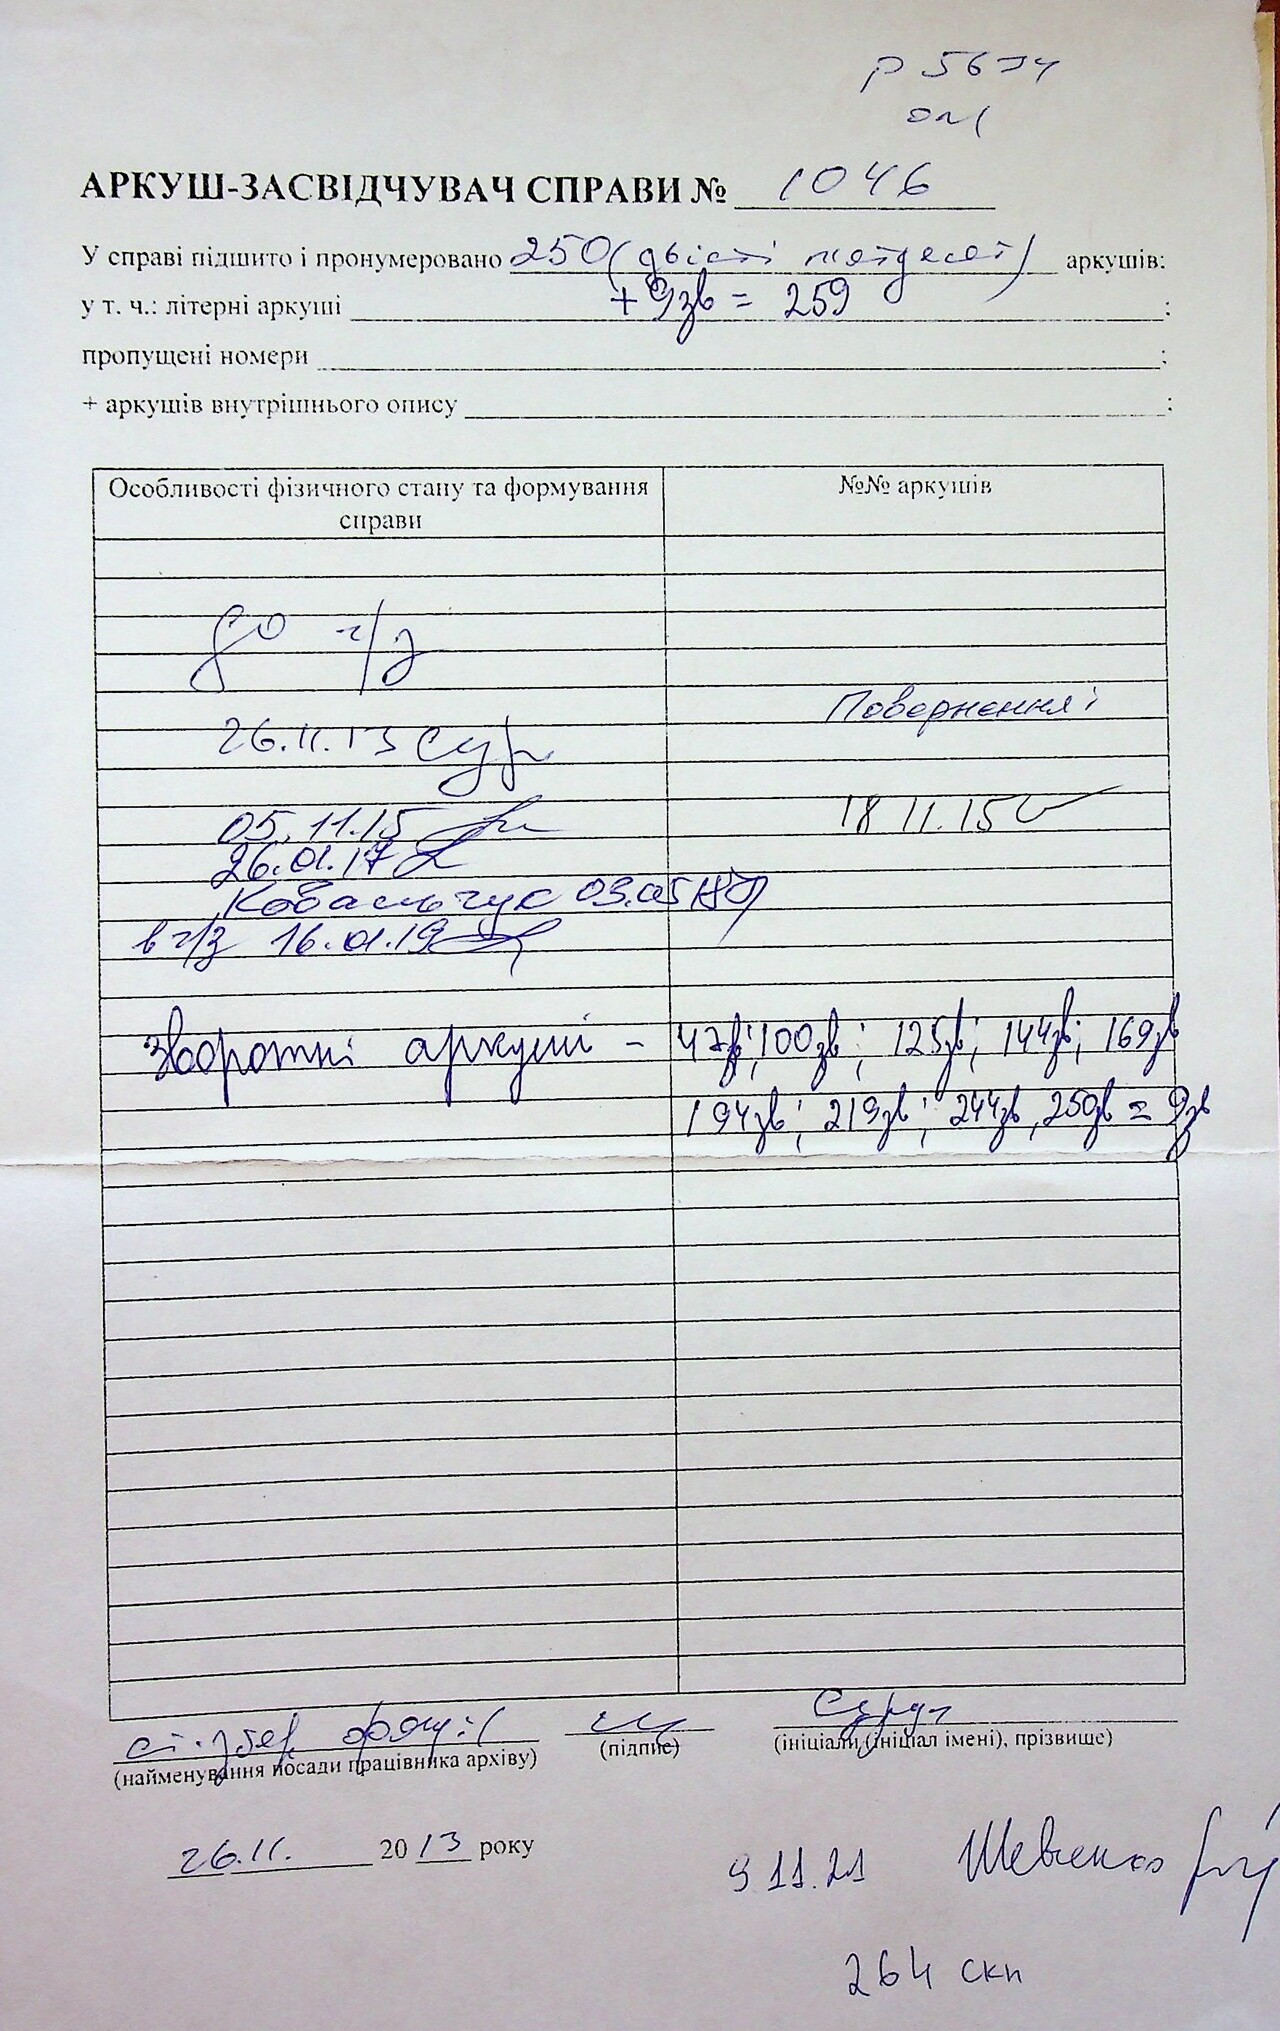 р 5674
оп1
АРКУШ-ЗАСВІДЧУВАЧ СПРАВИ № 1046
У справі підшито і пронумеровано 250 (двісті пятдесят) аркушів:
у т. ч.: літерні аркуші + 9зв = 259 ;
пропущені номери ;
+ аркушів внутрішнього опису ;
Особливості фізичного стану та формування справи №№ аркушів
до ч/з
Повернення:
26.11.13
05.11.15 18 11.15
26.01.17
Ковальчук 03.05.18
в ч/з 16.01.19
Зворотні аркуші - 47зв; 100зв; 125зв; 144зв; 169зв
194зв; 219зв; 244зв, 250зв = 9зв
(найменування посади працівника архіву) (підпис) (ініціали (ініціал імені), прізвище)
26.11. 2013 року
9 11.21 Шевченко
264 скп